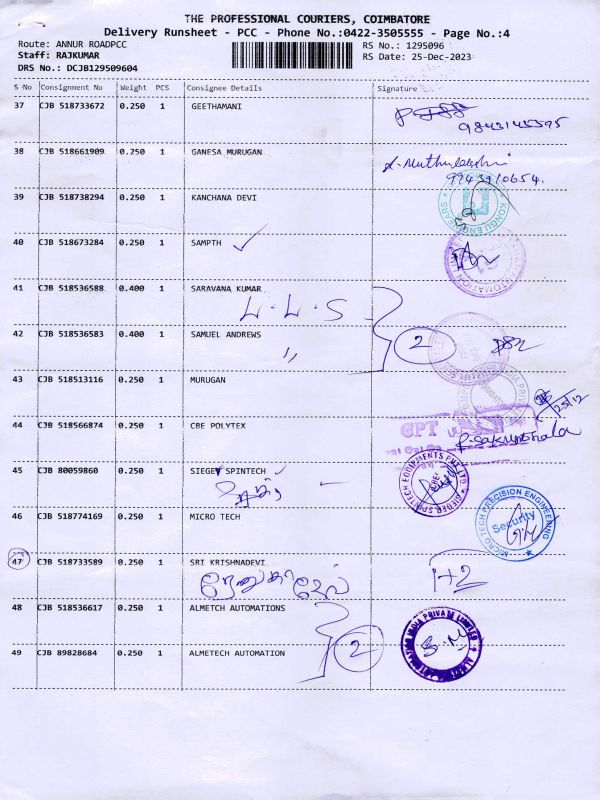 THE PROFESSIONAL COURIERS, COIMBATORE
Delivery Runsheet - PCC - Phone No.:0422-3505555 - Page No.:4
Route: ANNUR ROADPCC RS No.: 1295096
Staff: RAJKUMAR RS Date: 25-Dec-2023
DRS No.: DCJB129509604
S No Consignment No Weight PCS Consignee Details Signature
37 CJB 518733672 0.250 1 GEETHAMANI
9843145575
38 CJB 518661909 0.250 1 GANESA MURUGAN
9943910654.
39 CJB 518738294 0.250 1 KANCHANA DEVI
KONGU ENGEARS
40 CJB 518673284 0.250 1 SAMPTH
41 CJB 518536588 0.400 1 SARAVANA KUMAR
L. L. S
2
42 CJB 518536583 0.400 1 SAMUEL ANDREWS
43 CJB 518513116 0.250 1 MURUGAN
25/12
44 CJB 518566874 0.250 1 CBE POLYTEX
GPT
P. Sakunthala
45 CJB 80059860 0.250 1 SIEGER SPINTECH
SIEGER SPINTECH EQUIPMENTS PVT LTD
46 CJB 518774169 0.250 1 MICRO TECH
MICRO TECH PRECISION ENGINEERING
Security
47 CJB 518733589 0.250 1 SRI KRISHNADEVI
1+2
48 CJB 518536617 0.250 1 ALMETCH AUTOMATIONS
2
S.M
49 CJB 89828684 0.250 1 ALMETECH AUTOMATION